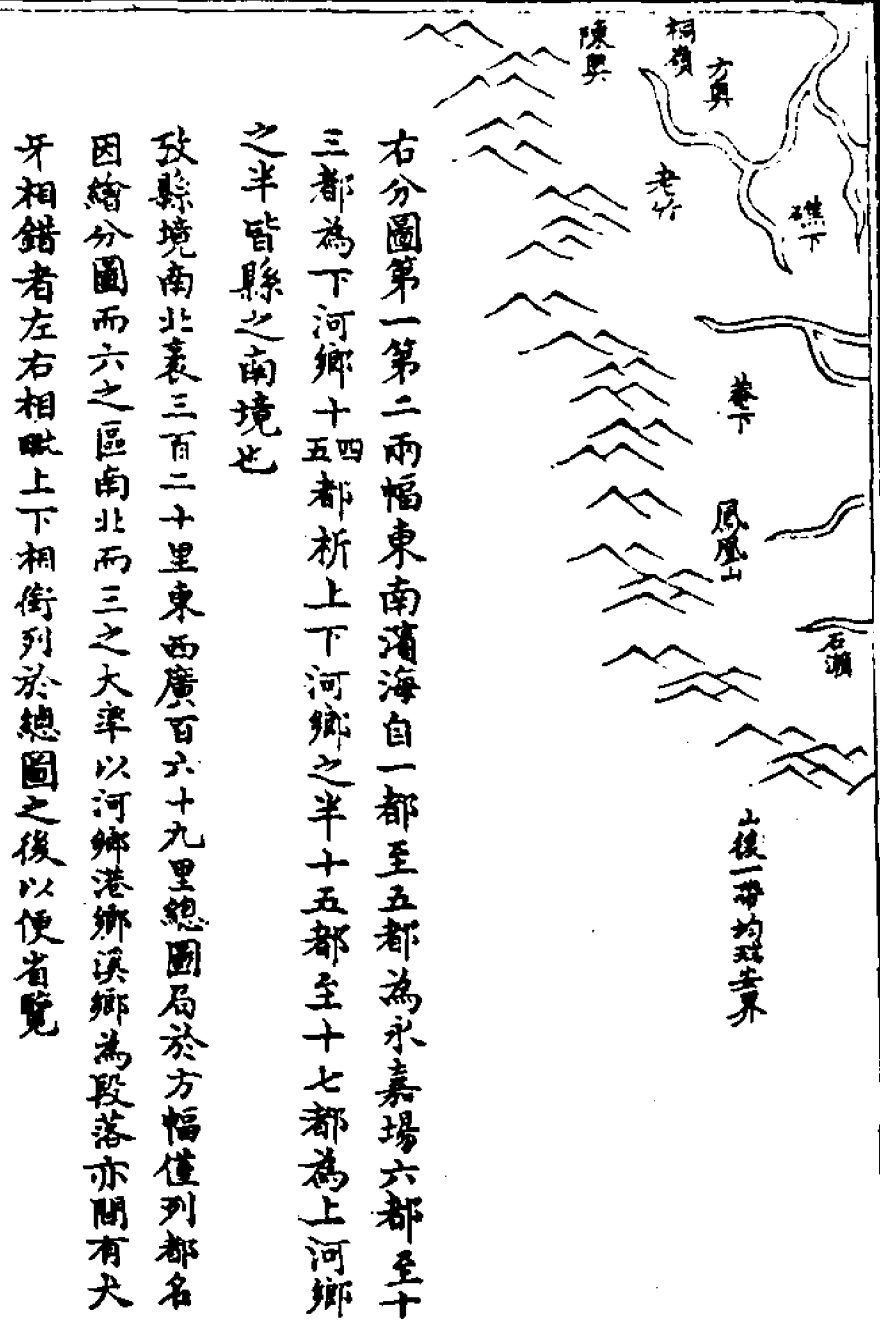 桐嶺
陳奧
方奧
老竹
礁下
菴下
鳳凰山
石瀨
山後一帶均瑞安界
右分圖第一第二兩幅東南濱海自一都至五都為永嘉場六都至十
三都為下河鄉十四五都析上下河鄉之半十五都至十七都為上河鄉
之半皆縣之南境也
攷縣境南北袤三百二十里東西廣百六十九里總圖局於方幅僅列都名
因繪分圖而六之區南北而三之大率以河鄉港鄉溪鄉為段落亦間有犬
牙相錯者左右相毗上下相銜列於總圖之後以便省覽